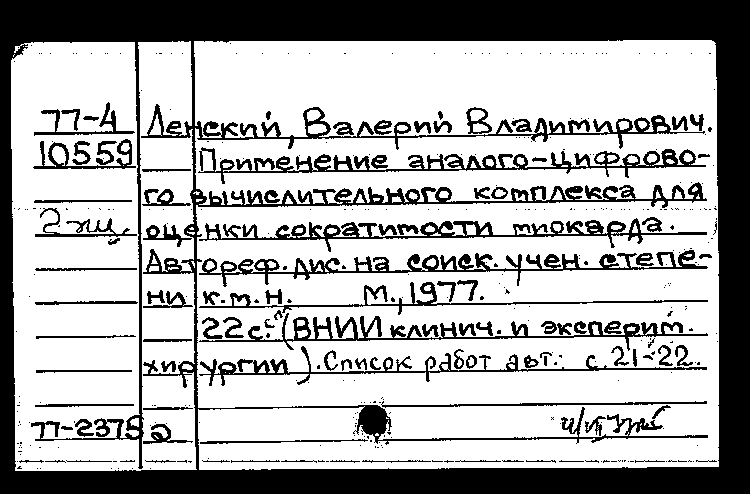 77-4 Ленский, Валерий Владимирович.
10559 Применение аналого-цифрово-
го вычислительного комплекса для
2 экз. оценки сократимости миокарда.
Автореф. дис. на соиск. учен. степе-
ни к.м.н. М., 1977.
22 с. (ВНИИ клинич. и эксперим.
хирургии). Список работ авт.: с. 21-22.
77-2378